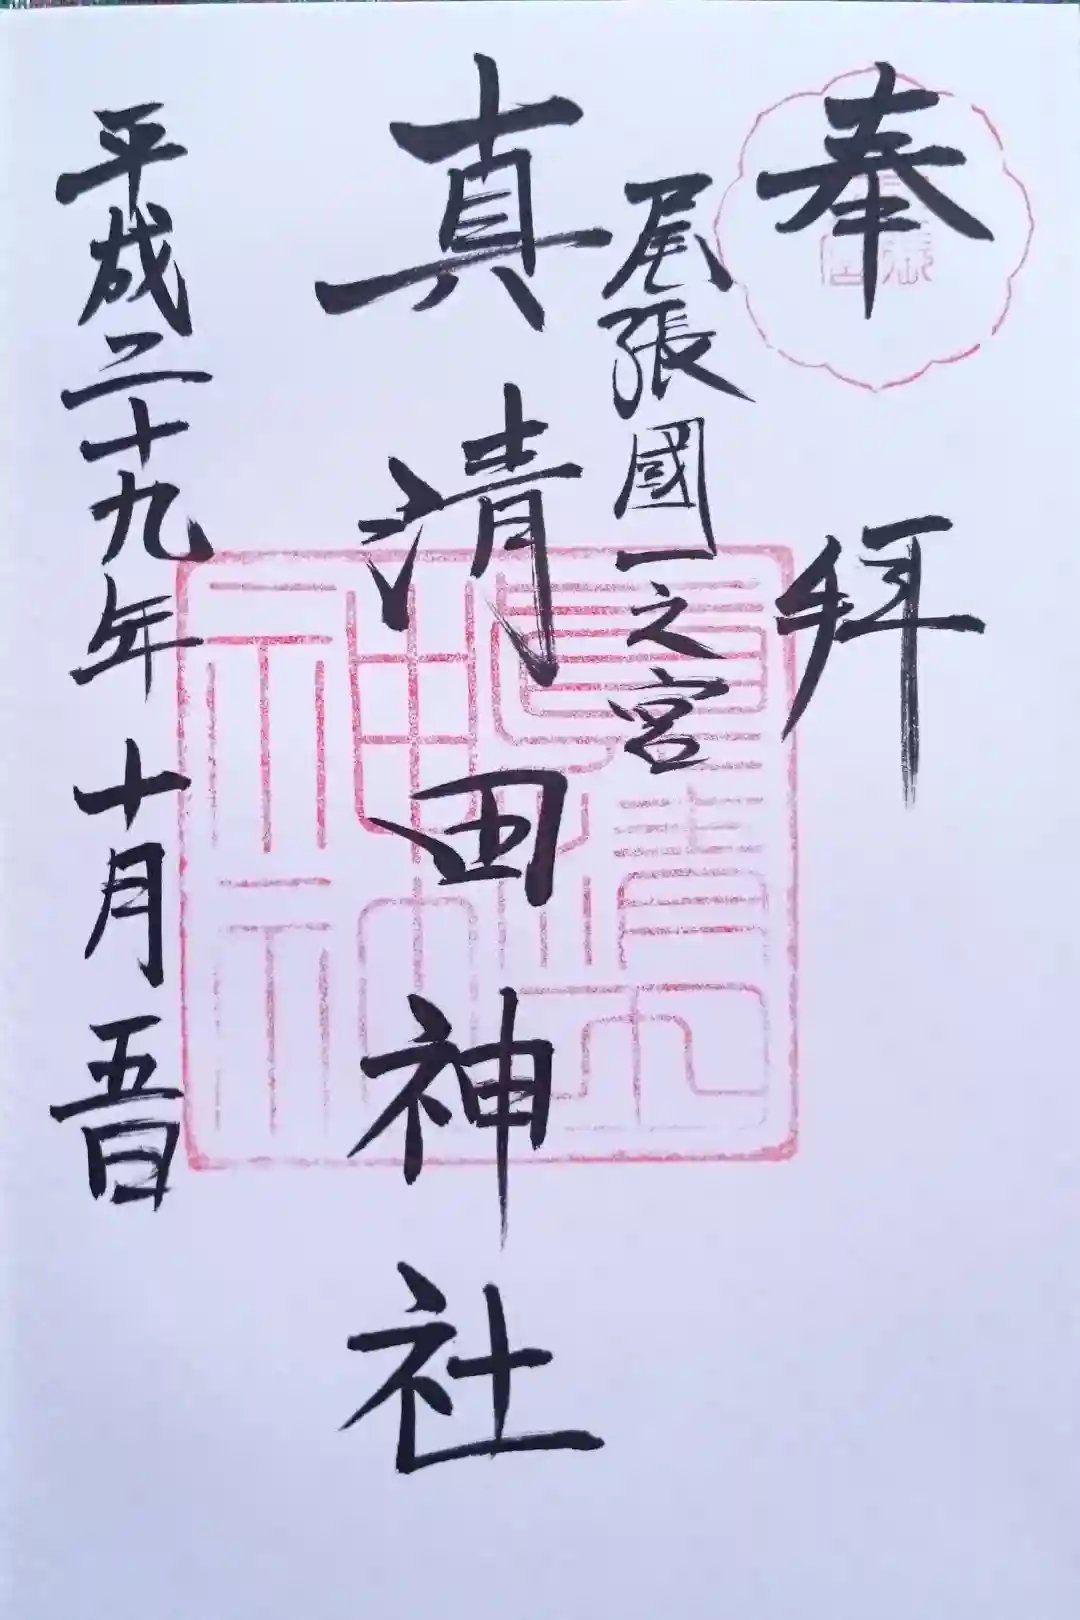 奉拝
尾張國一之宮
真清田神社
平成二十九年十月五日
真清田神社